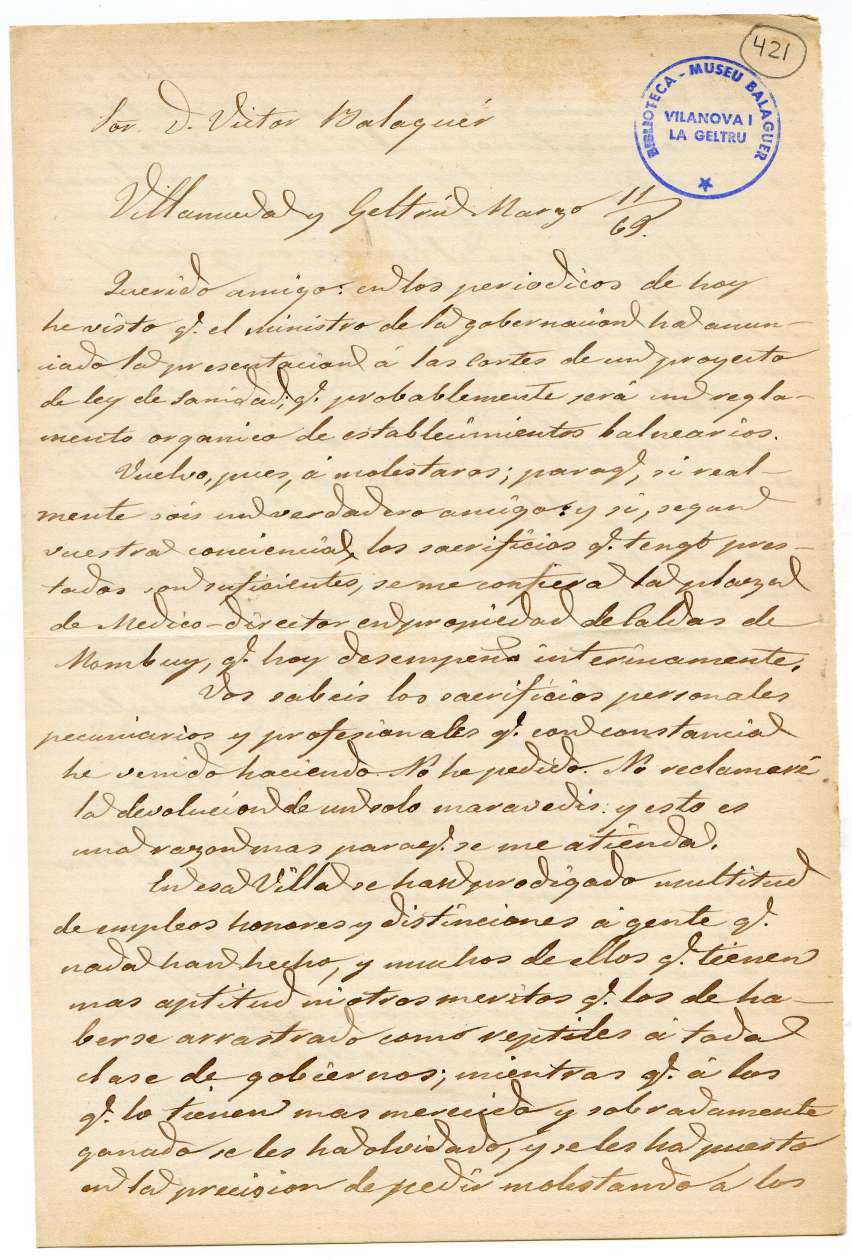 421
BIBLIOTECA - MUSEU BALAGUER
VILANOVA I
LA GELTRU
Sor. D. Victor Balaguér
Villanueva y Geltrú Marzo 11/69.
Querido amigo: en los periodicos de hoy
he visto q.e el ministro de la gobernacion ha anun-
ciado la presentacion á las cortes de un proyecto
de ley de sanidad; q.e probablemente será un regla-
mento organico de establecimientos balnearios.
Vuelvo, pues, á molestaros; paraq.e, si real-
mente sois un verdadero amigo: y si, segun
vuestra conciencia, los sacrificios q.e tengo pres-
tados son suficientes, se me confiera la plaza
de Medico-director en propiedad de Caldas de
Mombuy, q.e hoy desempeño interinamente.
Vos sabeis los sacrificios personales
pecuniarios y profesionales q.e con constancia
he venido haciendo. No he pedido. No reclamaré
la devolucion de un solo maravedis: y esto es
una razon mas paraq.e se me atienda.
En esa Villa se han prodigado multitud
de empleos honores y distinciones á gente q.e
nada han hecho, y muchos de ellos q.e tienen
mas aptitud ni otros meritos q.e los de ha-
berse arrastrado como reptiles á toda
clase de gobiernos; mientras q.e á los
q.e lo tienen mas merecido y sobradamente
ganado se les ha olvidado, y se les ha puesto
en la precision de pedir molestando a los